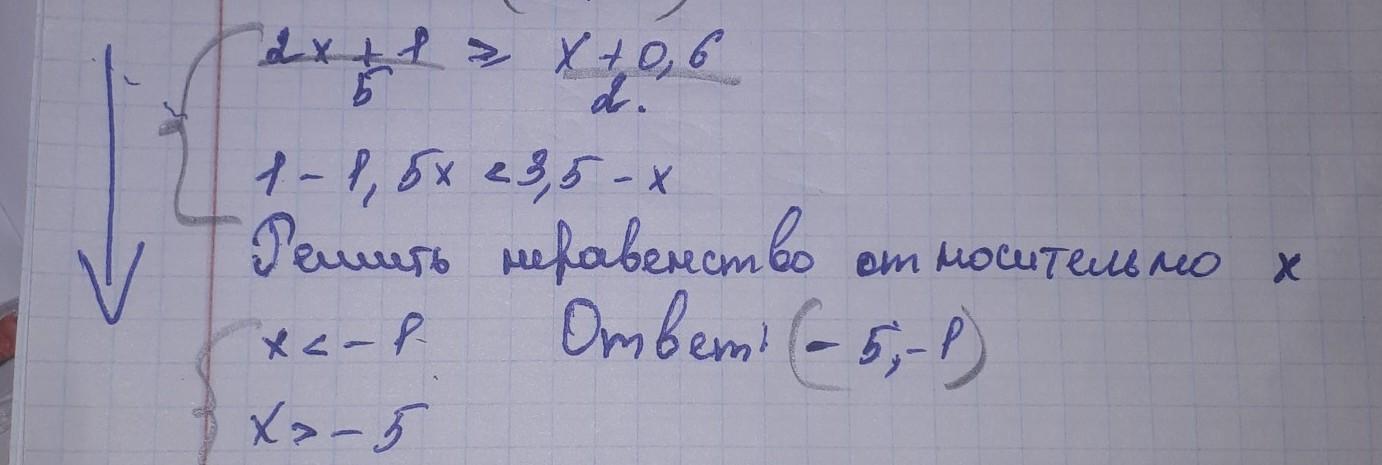 2x + 1 ⩾ x + 0,6
5 2.
1 - 1,5x < 3,5 - x
Решить неравенство относительно x
x < -1 Ответ: (-5;-1)
x > -5